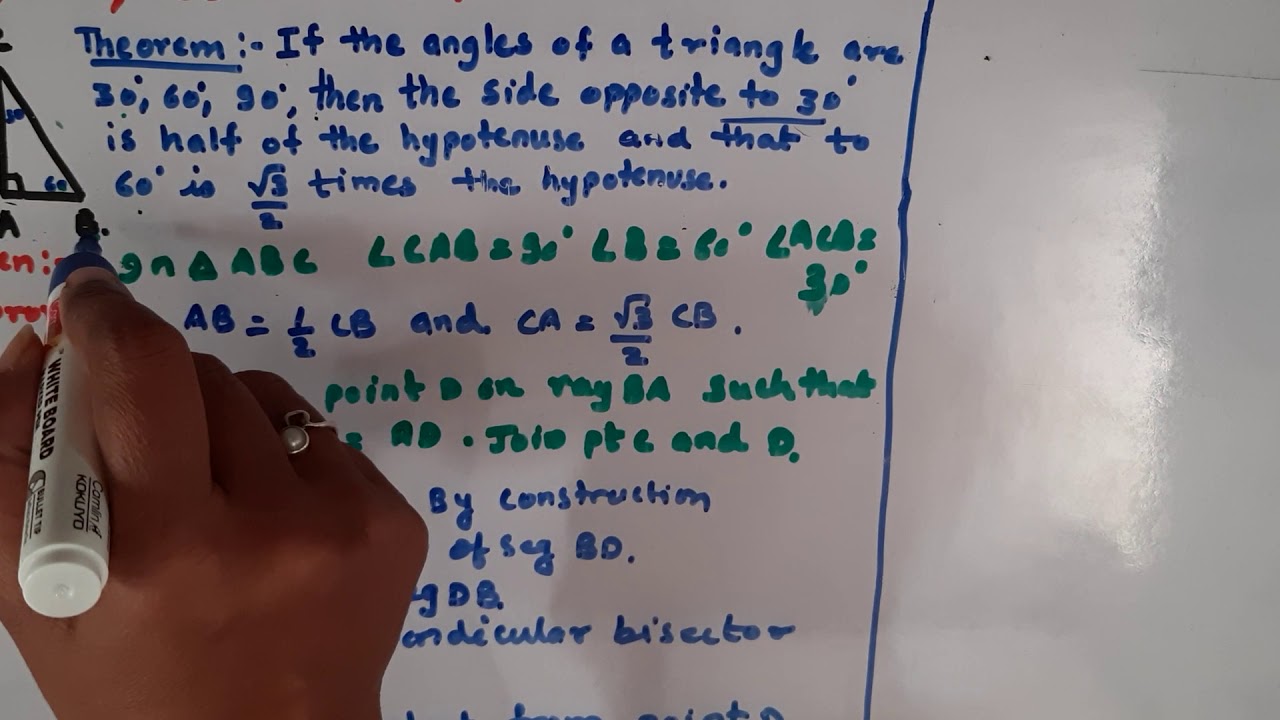 Theorem :- If the angles of a triangle are
30°, 60°, 90°, then the side opposite to 30°
is half of the hypotenuse and that to
60° is √3/2 times the hypotenuse.
30
60
A B.
en:- gn Δ ABC ∠CAB = 90° ∠B = 60° ∠ACB =
30°
AB = 1/2 CB and CA = √3/2 CB.
point D on ray BA such that
= AD. Join pt C and D.
By construction
of seg BD.
g DB.
endicular bisector
from point D
WHITE BOARD
Camlin
KOKUYO
BULLET TIP